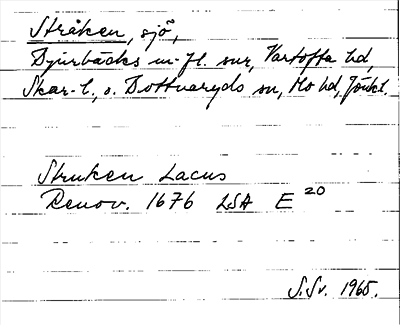 Stråken, sjö,
Djurbäcks m. fl. snr, Vartofta hd,
Skar. l., o. Bottnaryds sn, Mo hd, Jönk l.
Struken Lacus
Renov. 1676 LSA E 20
S. Sv. 1965.